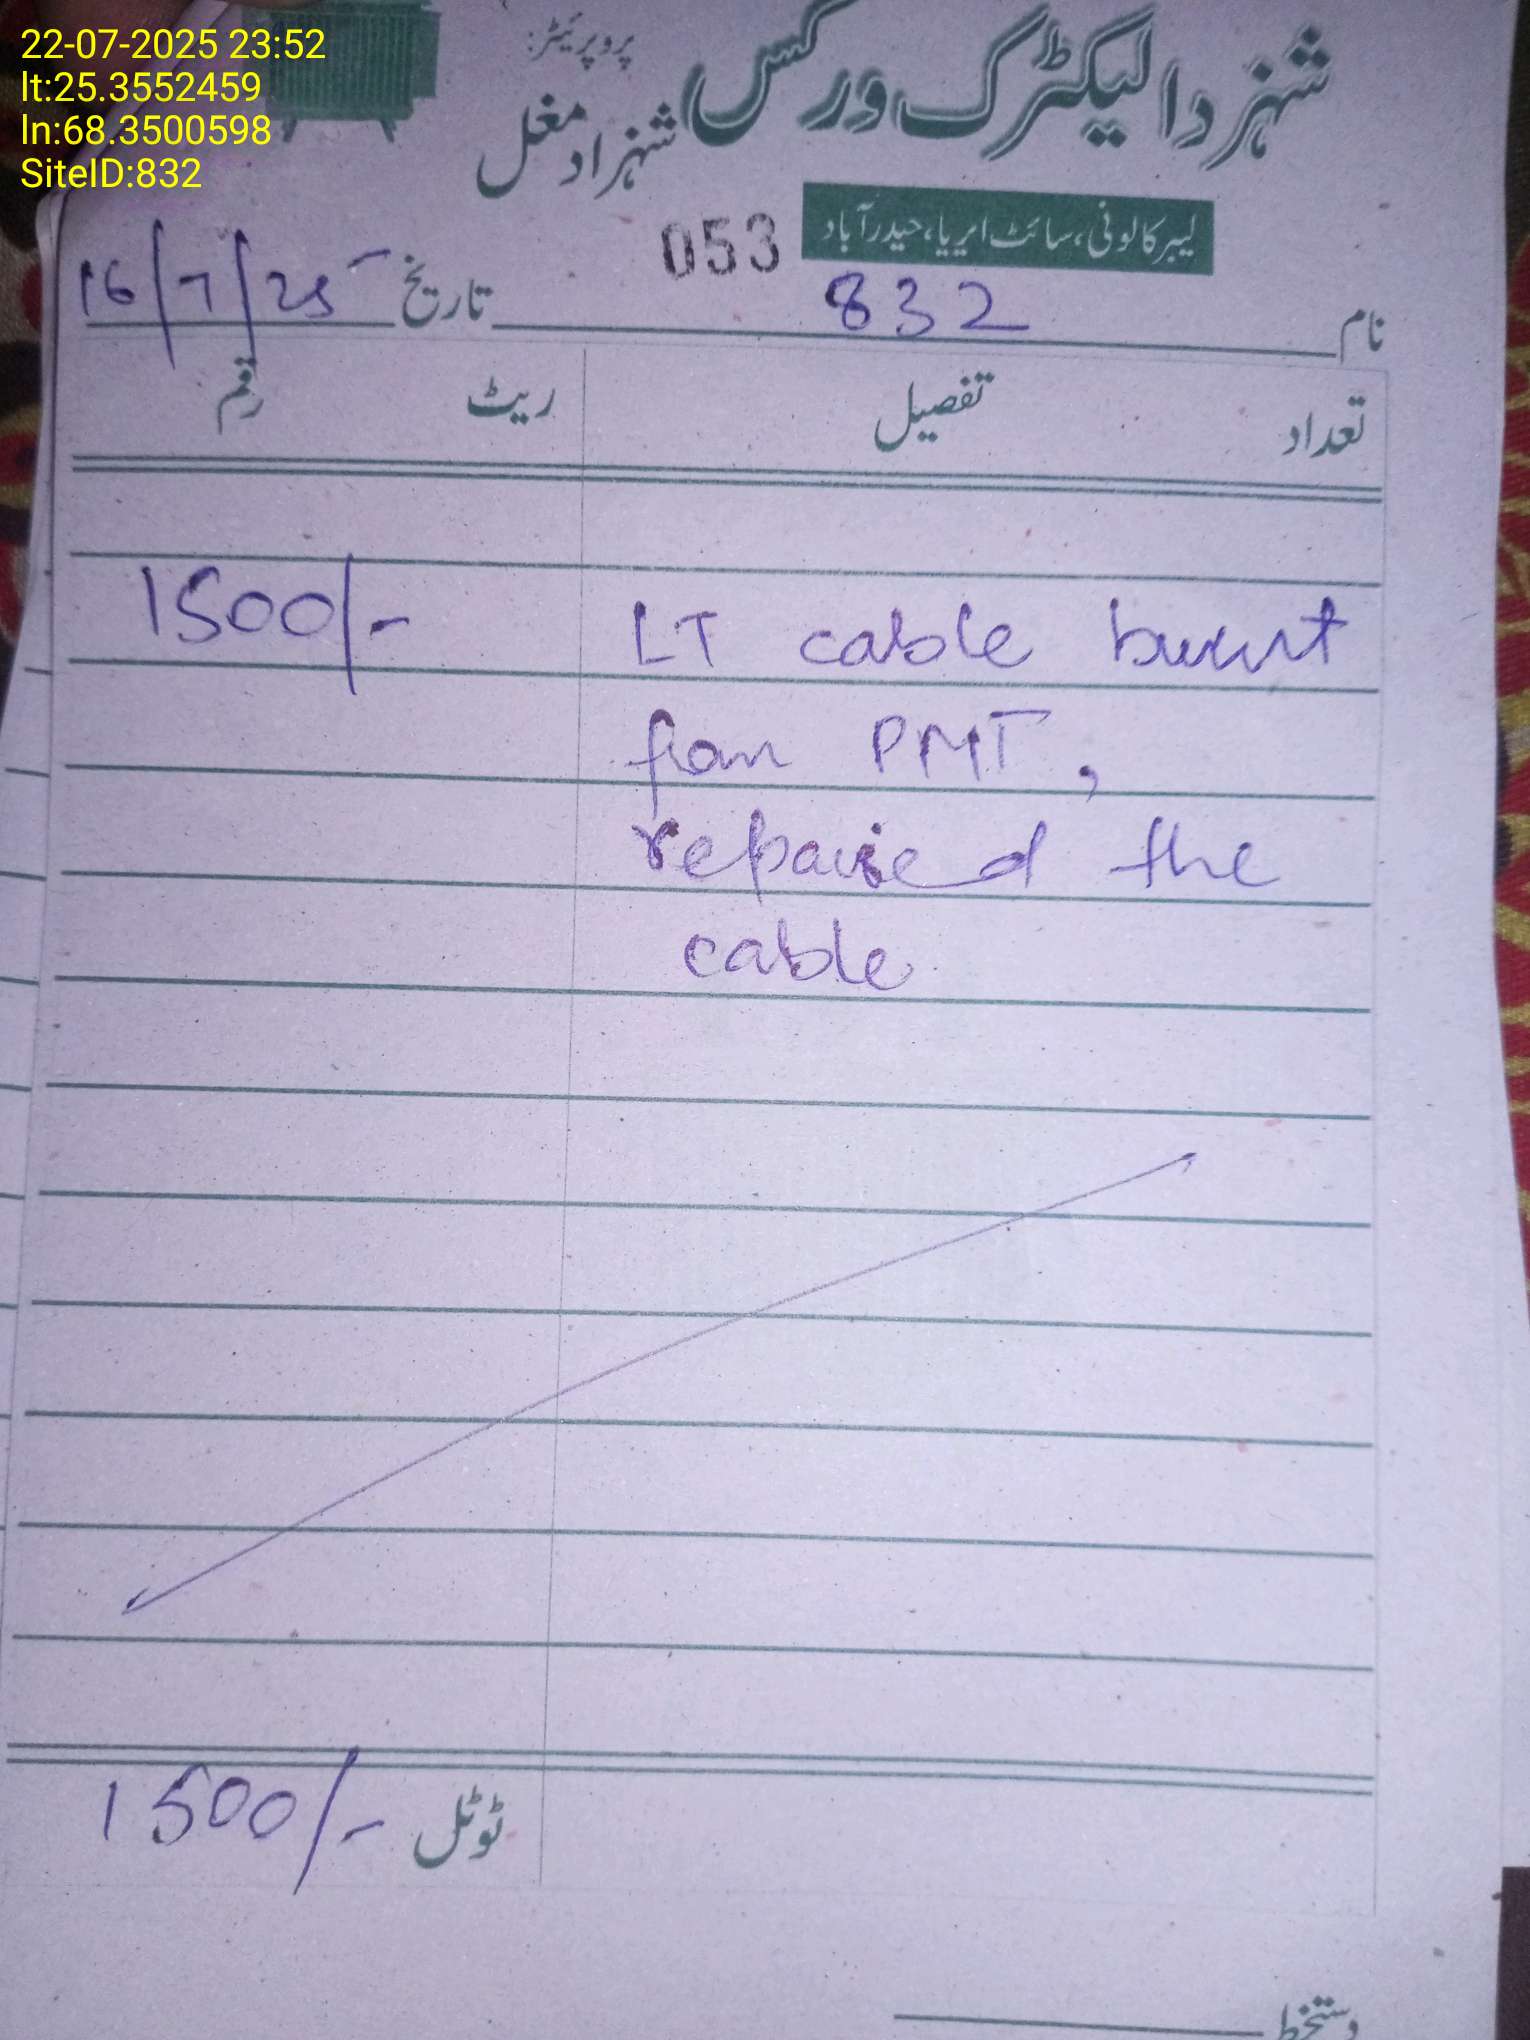 22-07-2025 23:52
lt:25.3552459
ln:68.3500598
SiteID:832
شہزدا لیکٹرک ورکس
پروپرئیٹر:
شہزاد مغل
لیبر کالونی، سائٹ ایریا، حیدرآباد
053
نام 832 تاریخ 16/7/25
تعداد تفصیل ریٹ رقم
LT cable burnt 1500/-
from PMT,
repaired the
cable
ٹوٹل 1500/-
دستخط